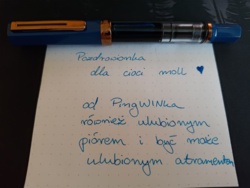 Pozdrowionka
dla cioci moll
od PingWINka
również ulubionym
piórem i być może
ulubionym atramentem